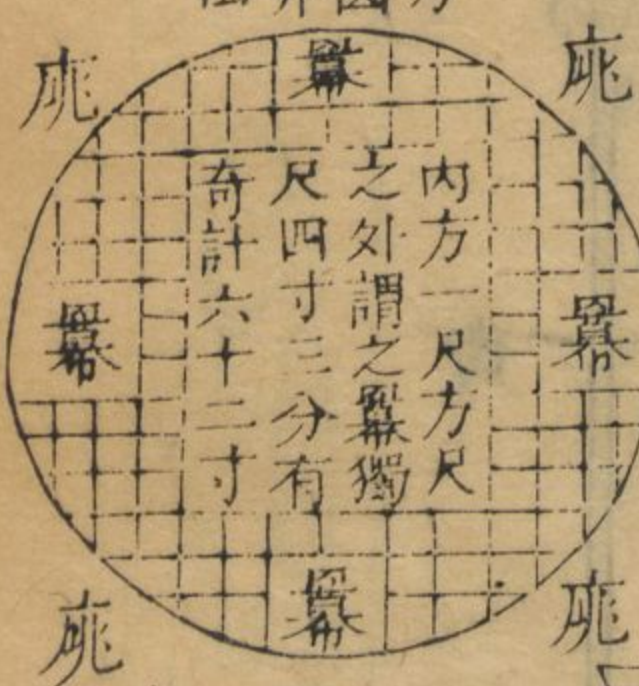 庣
羃
庣
羃
內方一尺方尺
之外謂之羃獨
尺四寸三分有
奇計六十二寸
羃
庣
羃
庣